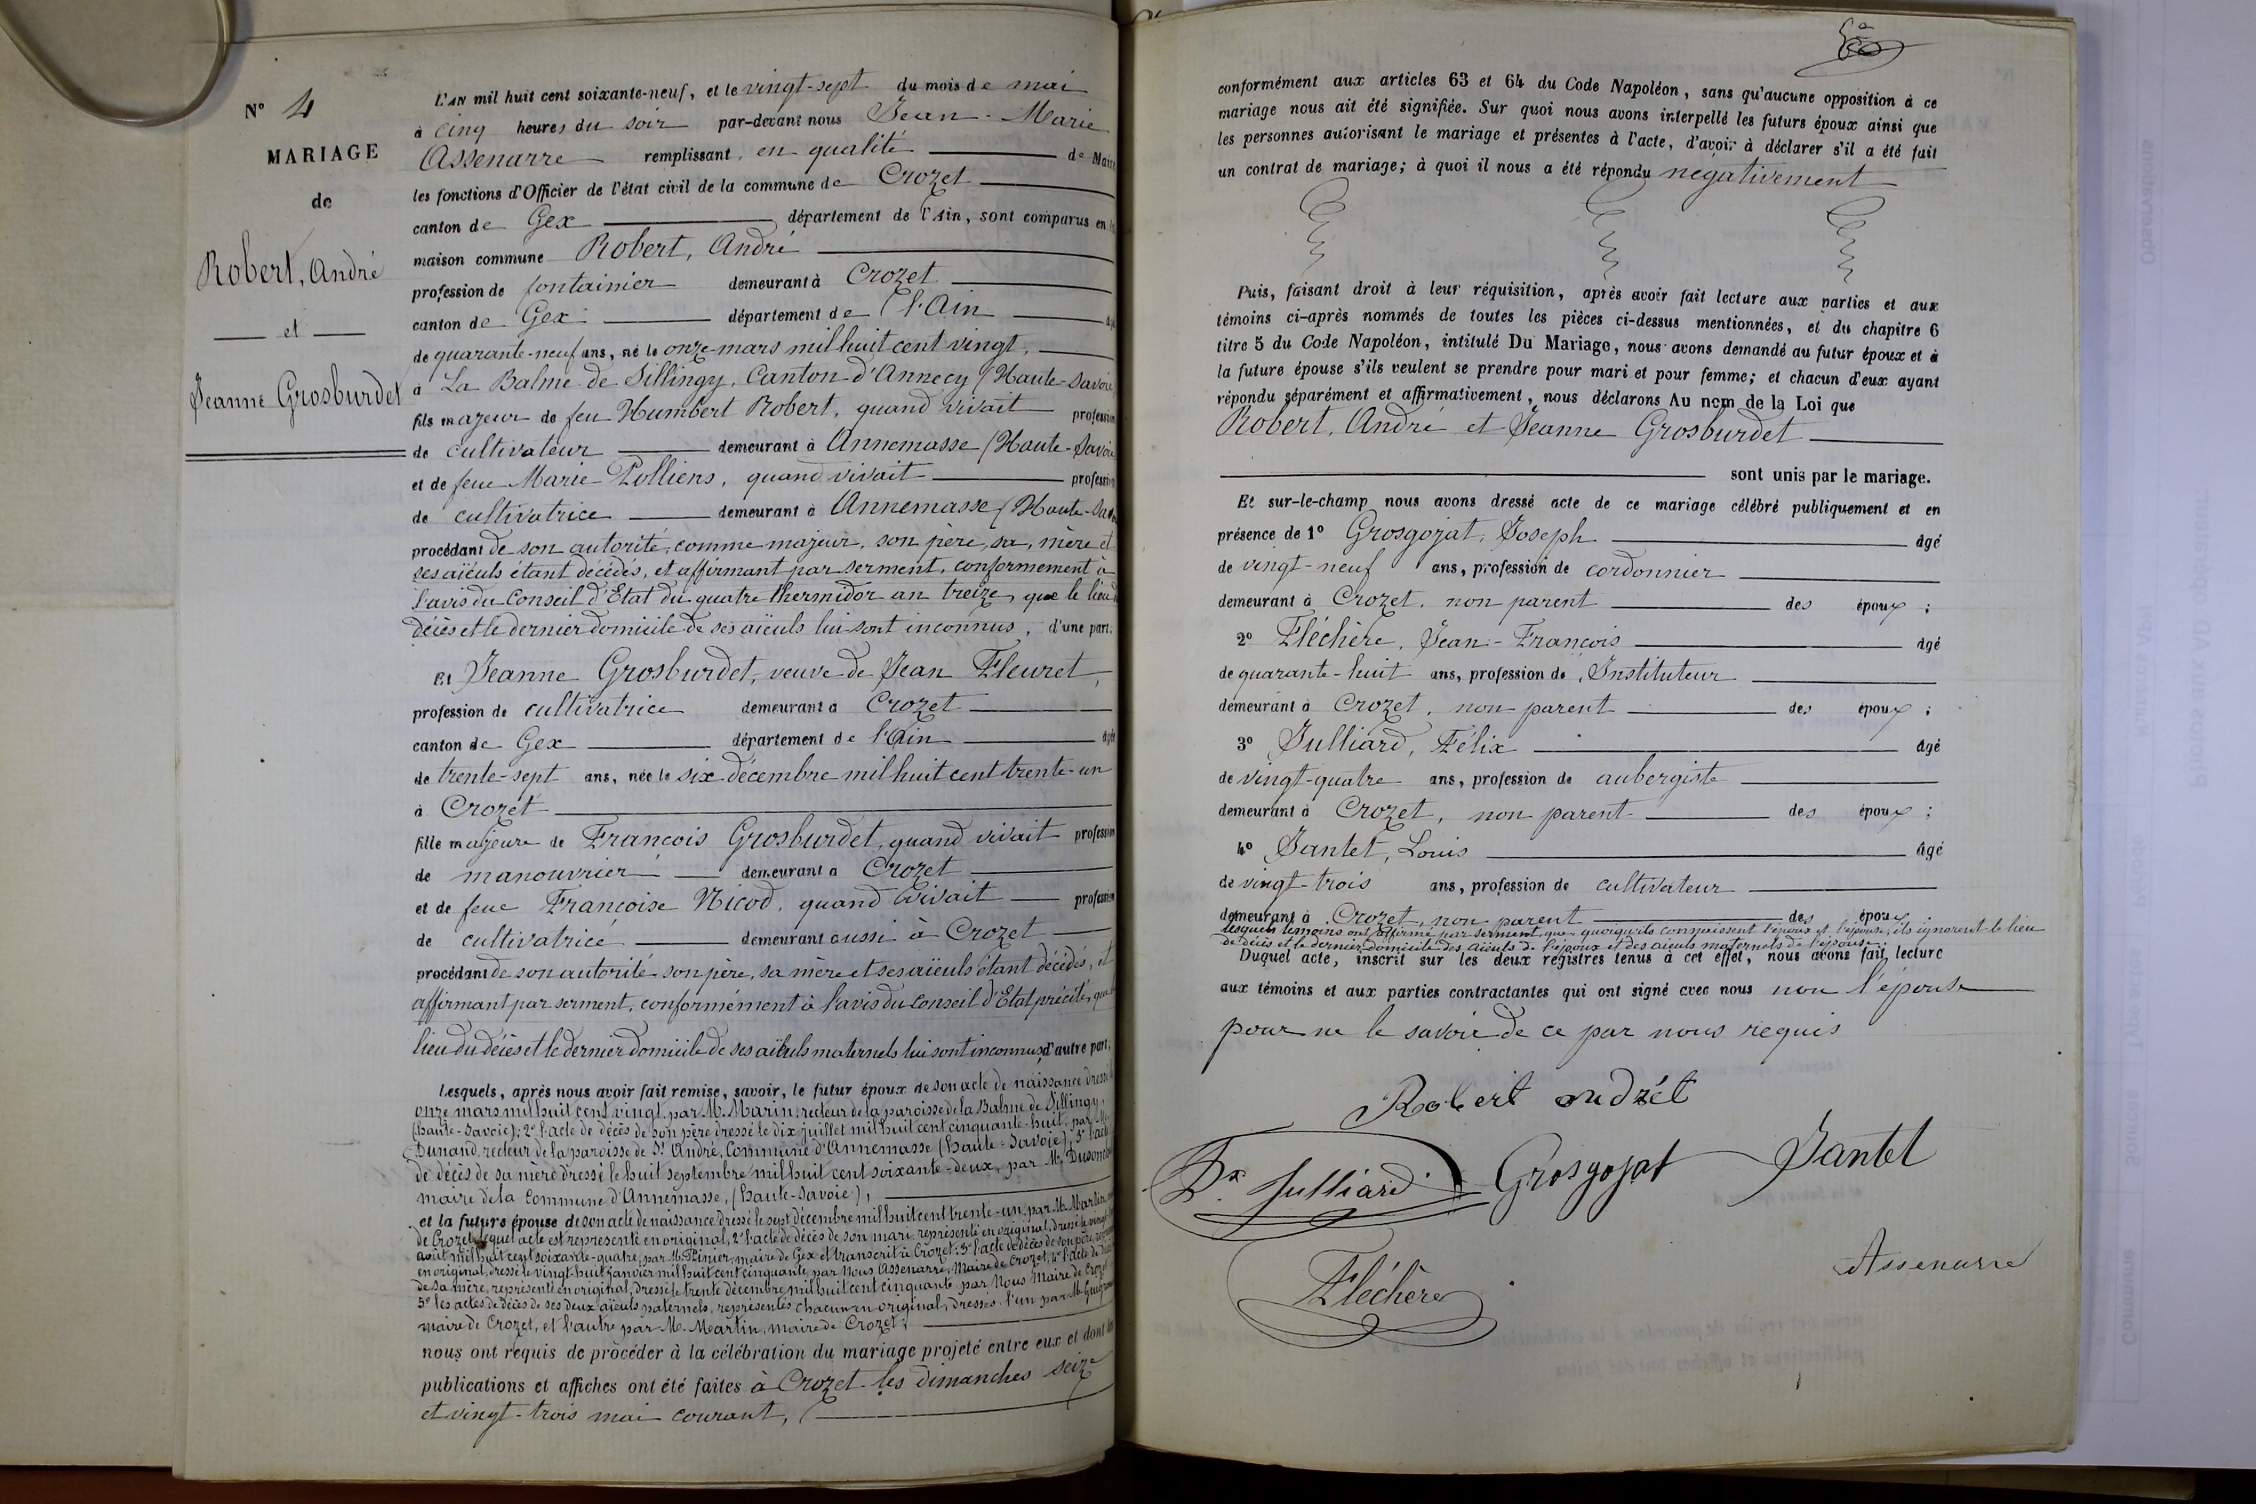 N° 4
MARIAGE
de
Robert, André
et
Jeanne Grosburdet
L'AN mil huit cent soixante-neuf, et le vingt-sept du mois de mai
à cinq heures du soir par-devant nous Jean-Marie
Assenarre remplissant en qualité de Maire
les fonctions d'Officier de l'état civil de la commune de Crozet
canton de Gex département de l'Ain, sont comparus en la
maison commune Robert, André
profession de fontainier demeurant à Crozet
canton de Gex département de l'Ain âgé
de quarante-neuf ans, né le onze mars mil huit cent vingt,
à La Balme de Sillingy, Canton d'Annecy (Haute-Savoie
fils majeur de feu Humbert Robert, quand vivait profession
de cultivateur demeurant à Annemasse (Haute-Savoie
et de feue Marie Polliens, quand vivait profession
de cultivatrice demeurant à Annemasse (Haute-Savoie
procédant de son autorité, comme majeur, son père, sa, mère et
ses aïeuls étant décédés, et affirmant par serment, conformement à
l'avis du Conseil d'Etat du quatre thermidor an treize, que le lieu du
décès et le dernier domicile de ses aïeuls lui sont inconnus, d'une part.
Et Jeanne Grosburdet, veuve de Jean Fleuret,
profession de cultivatrice demeurant à Crozet
canton de Gex département de l'Ain âgée
de trente-sept ans, née le six décembre mil huit cent trente-un
à Crozet
fille majeure de François Grosburdet, quand vivait profession
de manouvrier demeurant à Crozet
et de feue Françoise Nicod, quand vivait profession
de cultivatrice demeurant aussi à Crozet
procédant de son autorité son père, sa mère et ses aïeuls étant décédés, et
affirmant par serment, conformément à l'avis du Conseil d'Etat précité, que le
lieu du décès et le dernier domicile de ses aïeuls maternels lui sont inconnus, d'autre part,
Lesquels, après nous avoir fait remise, savoir, le futur époux de son acte de naissance dressé le
onze mars mil huit cent vingt, par M. Marin, recteur de la paroisse de la Balme de Sillingy,
(haute-Savoie); 2° l'acte de décès de son père dressé le dix juillet mil huit cent cinquante-huit, par M.
Dunand, recteur de la paroisse de St André, Commune d'Annemasse (haute-Savoie); 3° l'acte
de décès de sa mère dressé le huit septembre mil huit cent soixante-deux, par Mr
maire de la Commune d'Annemasse, (haute-Savoie),
et la future épouse de son acte de naissance dressé le sept décembre mil huit cent trente-un, par M. Martin maire
de Crozet, lequel acte est représenté en original, 2° l'acte de décès de son mari, représenté en original, dressé le vingt
août mil huit cent soixante-quatre, par M. Pinier, maire de Gex et transcrit à Crozet; 3° l'acte de décès de son père, représenté
en original, dressé le vingt-huit janvier mil huit cent cinquante, par Nous Assenarre, Maire de Crozet, 4° l'acte de décès
de sa mère, représenté en original, dressé le trente décembre mil huit cent cinquante par Nous Maire de Crozet
5° les actes de décès de ses deux aïeuls paternels, représentés chacun en original, dressés l'un par M.
maire de Crozet, et l'autre par M. Martin, maire de Crozet;
nous ont requis de procéder à la célébration du mariage projeté entre eux et dont les
publications et affiches ont été faites à Crozet les dimanches seize
et vingt-trois mai courant,
conformément aux articles 63 et 64 du Code Napoléon, sans qu'aucune opposition à ce
mariage nous ait été signifiée. Sur quoi nous avons interpellé les futurs époux ainsi que
les personnes autorisant le mariage et présentes à l'acte, d'avoir à déclarer s'il a été fait
un contrat de mariage; à quoi il nous a été répondu negativement
Puis, faisant droit à leur réquisition, après avoir fait lecture aux parties et aux
témoins ci-après nommés de toutes les pièces ci-dessus mentionnées, et du chapitre 6
titre 5 du Code Napoléon, intitulé Du Mariage, nous avons demandé au futur époux et à
la future épouse s'ils veulent se prendre pour mari et pour femme; et chacun d'eux ayant
répondu séparément et affirmativement, nous déclarons Au nom de la Loi que
Robert, André et Jeanne Grosburdet
sont unis par le mariage.
Et sur-le-champ nous avons dressé acte de ce mariage célébré publiquement et en
présence de 1° Grosgojat, Joseph âgé
de vingt-neuf ans, profession de cordonnier
demeurant à Crozet, non parent des époux;
2° Fléchère, Jean-François âgé
de quarante-huit ans, profession de Instituteur
demeurant à Crozet, non parent des époux;
3° Julliard, Félix âgé
de vingt-quatre ans, profession de aubergiste
demeurant à Crozet, non parent des époux;
4° Jantet, Louis âgé
de vingt-trois ans, profession de cultivateur
demeurant à Crozet, non parent des époux
lesquels témoins ont affirmé par serment, que quoiqu'ils connaissent l'époux et l'épouse, ils ignorent le lieu
de décès et le dernier domicile des aïeuls de l'époux et des aïeuls maternels de l'épouse.
Duquel acte, inscrit sur les deux registres tenus à cet effet, nous avons fait lecture
aux témoins et aux parties contractantes qui ont signé avec nous non l'épouse
pour ne le savoir de ce par nous requis
Robert andrét
Fx Julliard
Grosgojat
Jantet
Fléchère
Assenarre